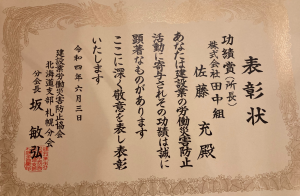 表彰状
功績賞（所長）
株式会社田中組
佐藤 充殿
あなたは建設業の労働災害防止
活動に寄与されその功績は誠に
顕著なものがあります
ここに深く敬意を表し表彰
いたします
令和四年六月三日
建設業労働災害防止協会
北海道支部札幌分会
分会長 坂 敏弘